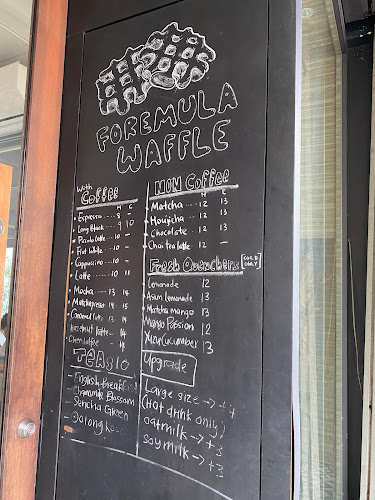 FOREMULA
WAFFLE
With
COFFEE
H C
Espresso .... 8 -
Long Black .. 9 10
Piccolo Latte .. 10 -
Flat White ... 10 -
Cappuccino ... 10 -
Latte .... 10 11
Mocha .... 13 14
Matchapresso .. 14 15
Caramel latte .. 13 14
Hazelnut latte - 14
14
TEA 10
- English Breakfast
- Chamomile Blossom
- Sencha Green
- Oolong
NON COFFEE
H C
Matcha ---- 12 13
Houjicha ---- 12 13
Chocolate ---- 12 13
Chai tea latte 12 -
Fresh Quenchers COLD ONLY
Lemonade 12
Asam lemonade 13
Matcha mango 13
Mango Passion 12
Yuzu Cucumber 13
Upgrade
Large size →
(Hot drink only)
oatmilk → +3
soy milk → +3